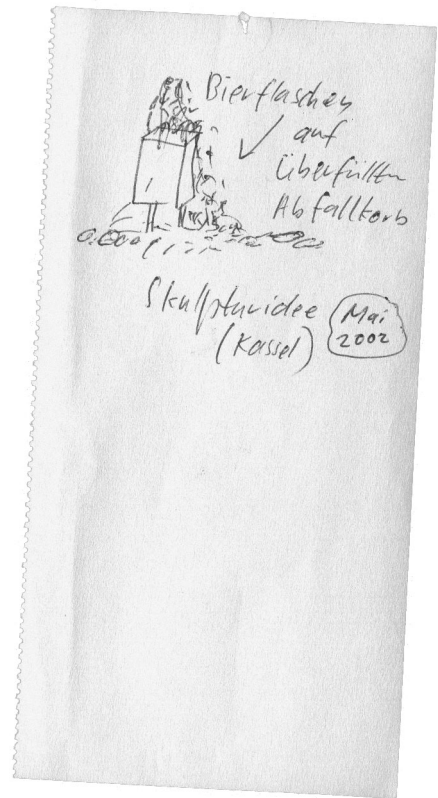 Bierflaschen
auf
überfüllten
Abfallkorb
Skulpturidee
(Kassel)
Mai
2002